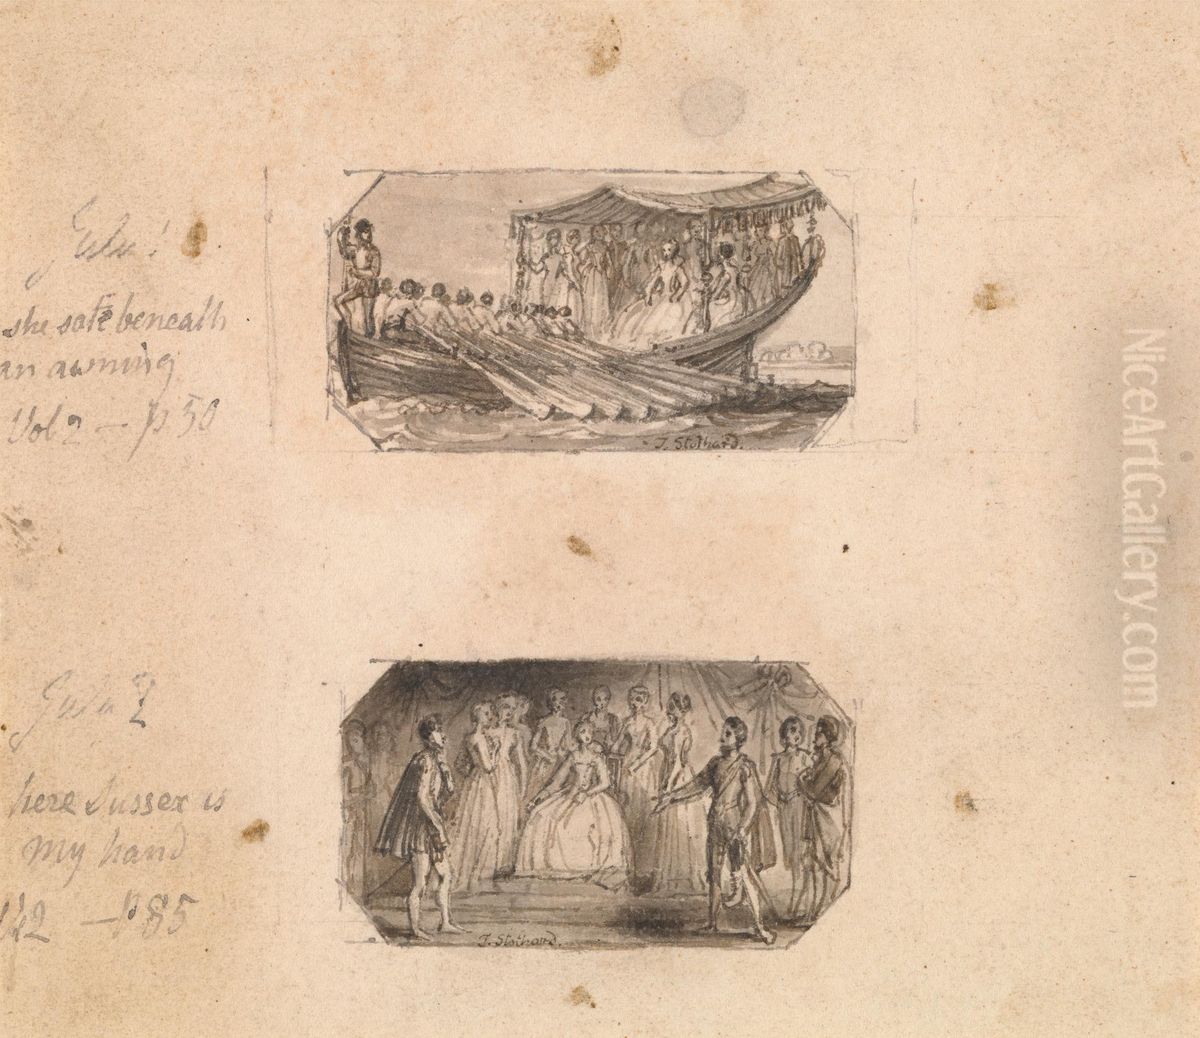 July 1
she sate beneath
an awning
Vol 2 — p 50
T. Stothard.
here Sussex is
my hand
— p 85
T. Stothard.
NiceArtGallery.com